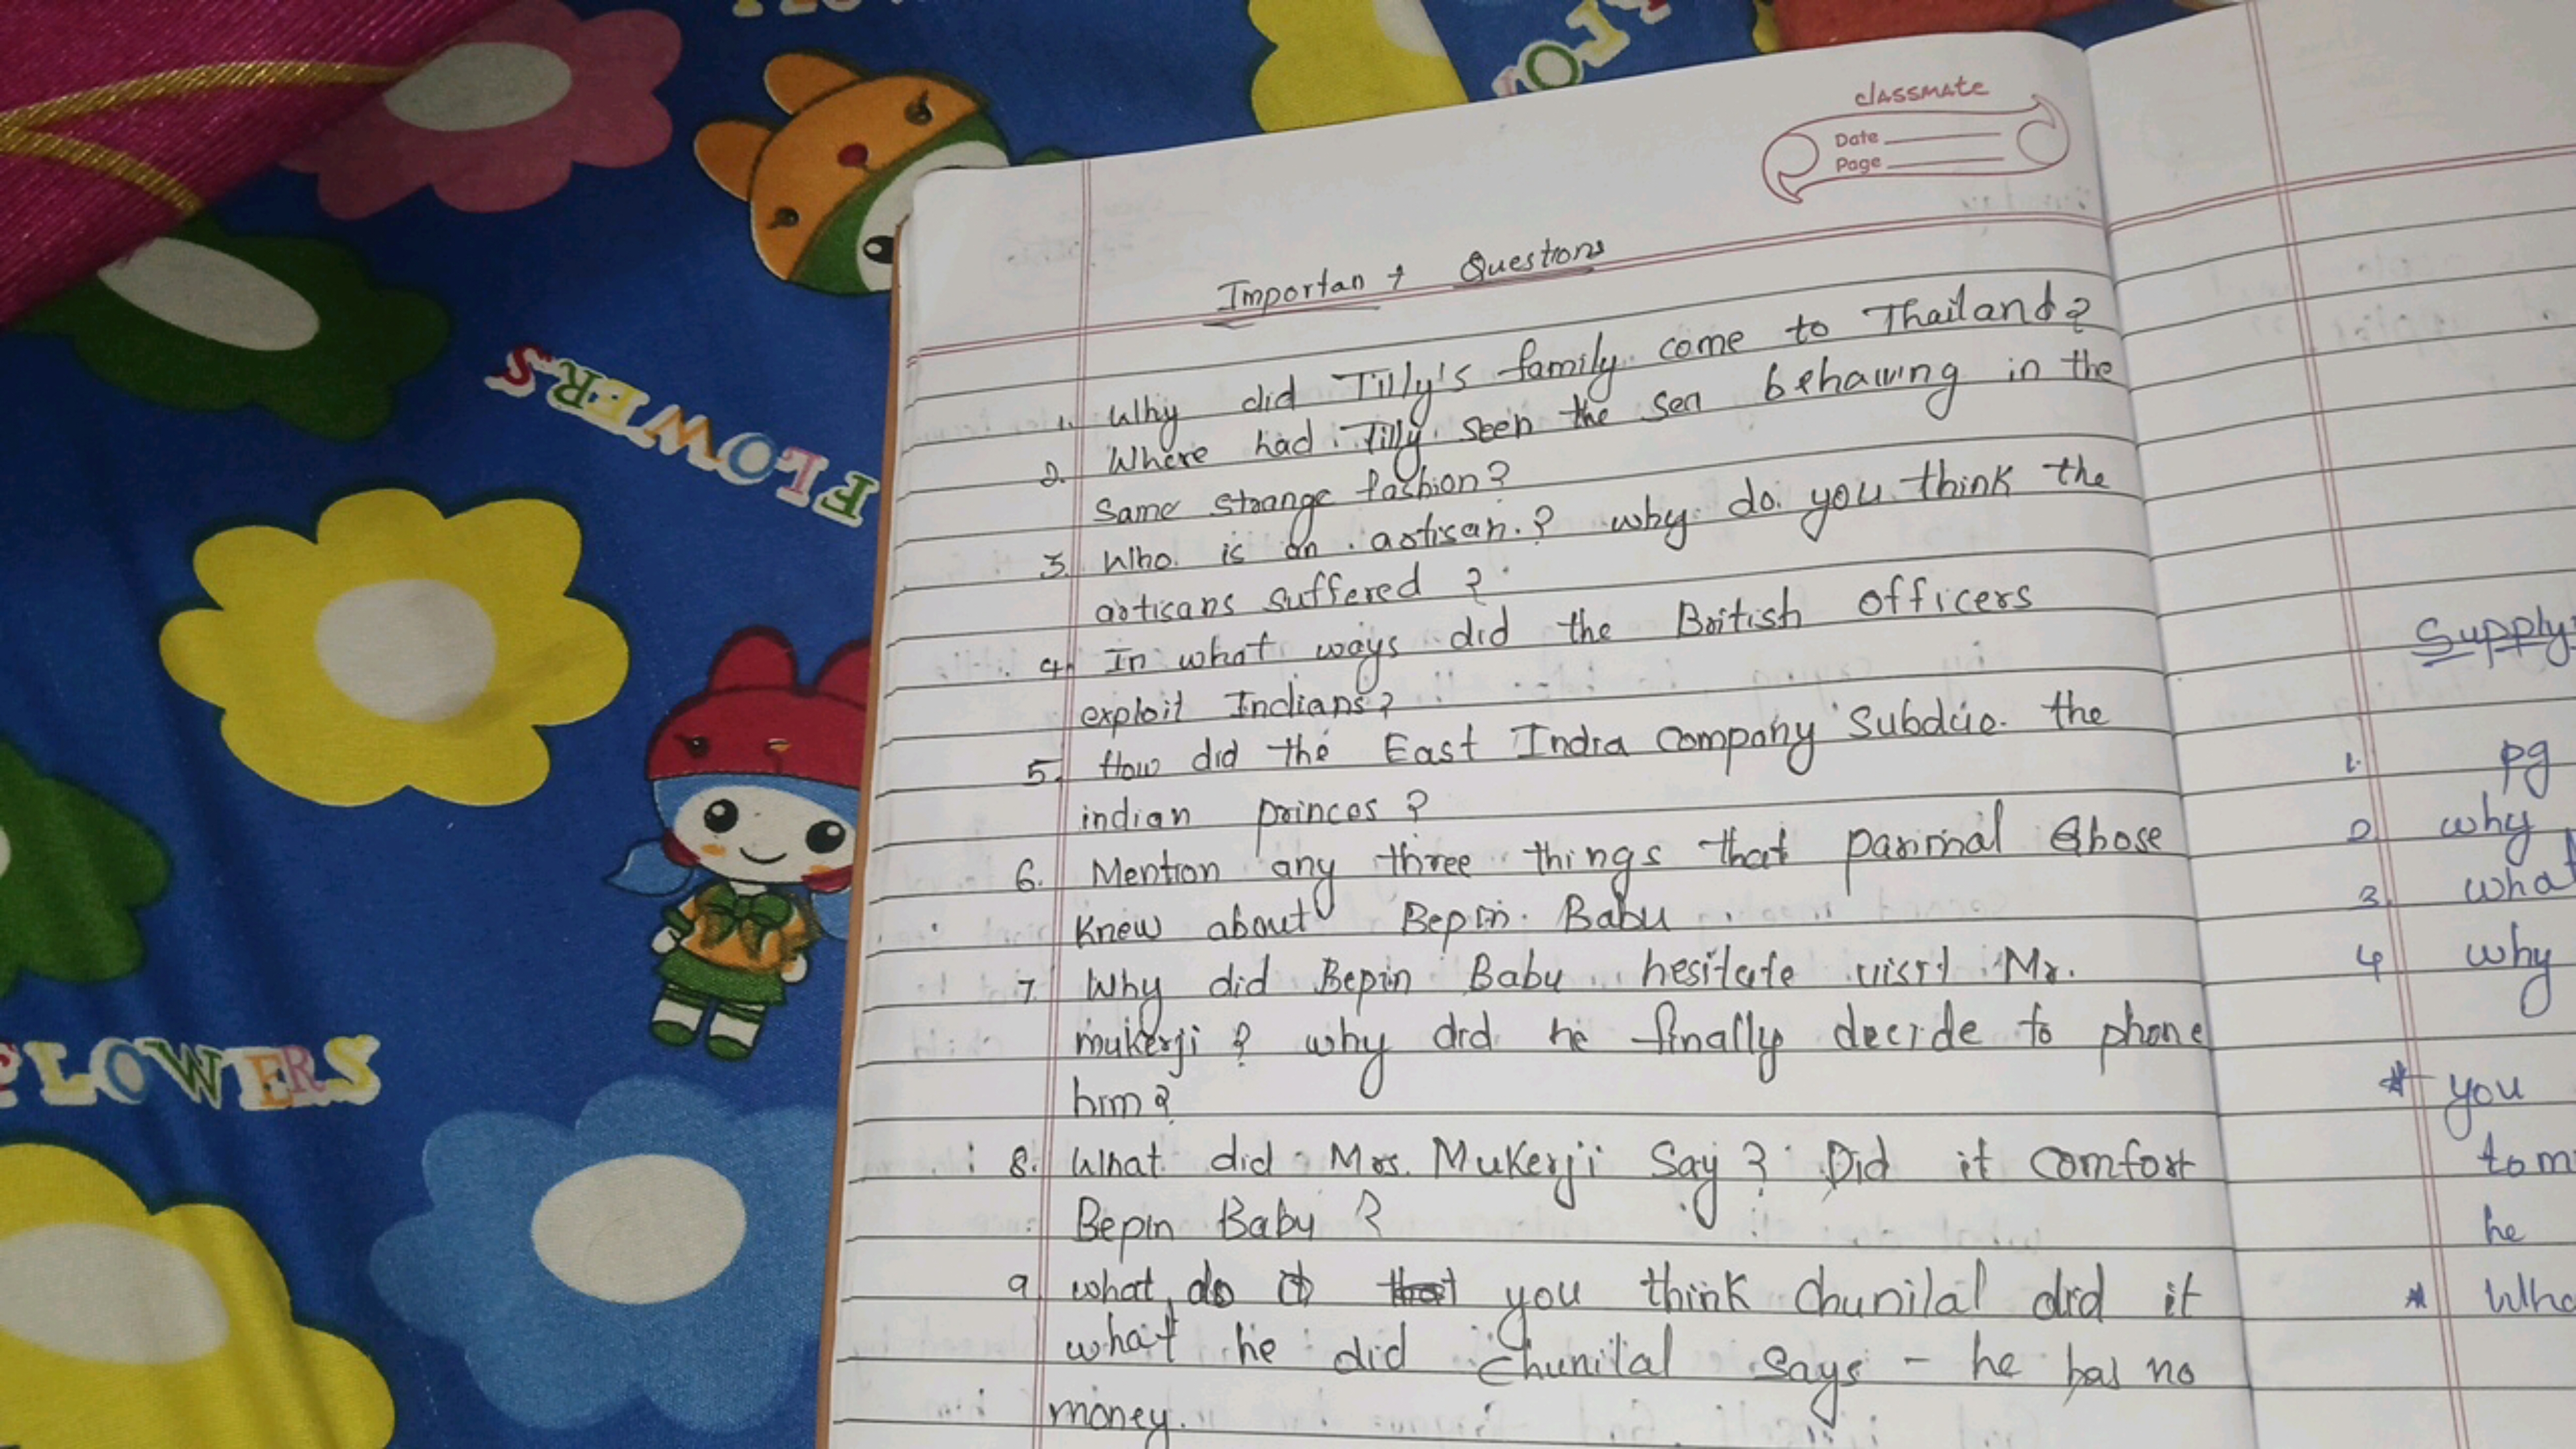 FLOWERS
FLOWERS
classmate
Date
Page
Important Questions
1. Why did Tilly's family come to Thailand?
2. Where had Tilly seen the sea behaving in the
Same strange fashion?
3. Who is an artisan.? why do you think the
artisans suffered ?
4. In what ways did the British officers
exploit Indians?
5. How did the East India Company Subdue the
indian princes ?
6. Mention any three things that parimal Ghose
Knew about Bepin Babu
7. Why did Bepin Babu hesitate visit Mr.
mukerji ? why did he finally decide to phone
him?
8. What did Mrs. Mukerji Say? Did it comfort
Bepin Baby ?
9. what do you think chunilal did it
what he did chunilal says - he has no
money.
Supply
1. pg
2. why
3.
4 why
* you
he
*